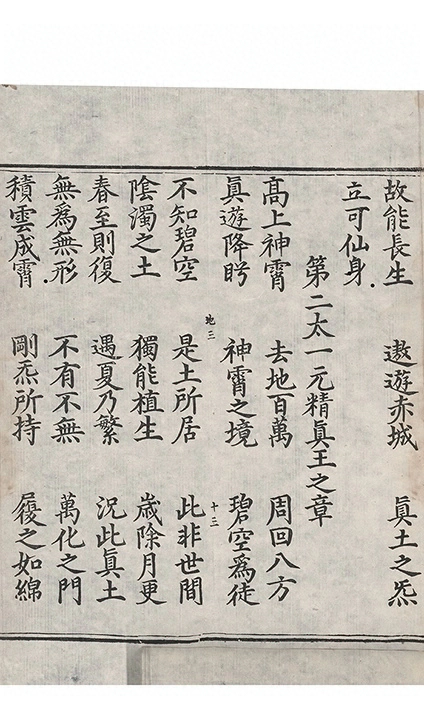 故能長生 遨遊赤城 眞土之炁
立可仙身
第二太一元精眞王之章
髙上神霄 去地百萬 周回八方
眞遊降眄 神霄之境 碧空爲徒
地三 十三
不知碧空 是土所居 此非世間
陰濁之土 獨能植生 歲除月更
春至則復 遇夏乃繁 況此眞土
無爲無形 不有不無 萬化之門
積雲成霄 剛炁所持 履之如綿